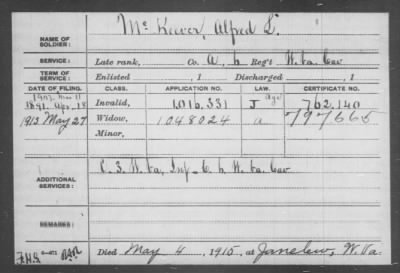 NAME OF SOLDIER: McKeever, Alfred L.
SERVICE: Late rank, Co. A, 6 Reg't W.Va. Cav
TERM OF SERVICE: Enlisted , 1 Discharged , 1
DATE OF FILING. CLASS. APPLICATION NO. LAW. CERTIFICATE NO.
1907 Mar 11 Age
1891, Apr. 18 Invalid, 1,016,331 J 762.140
1915 May 27 Widow, 1048024 a 797665
Minor,
ADDITIONAL SERVICES: C. 3. W.Va. Inf - C. 6 W.Va. Cav
REMARKS:
Died May 4, 1915, at Janelew, W.Va.